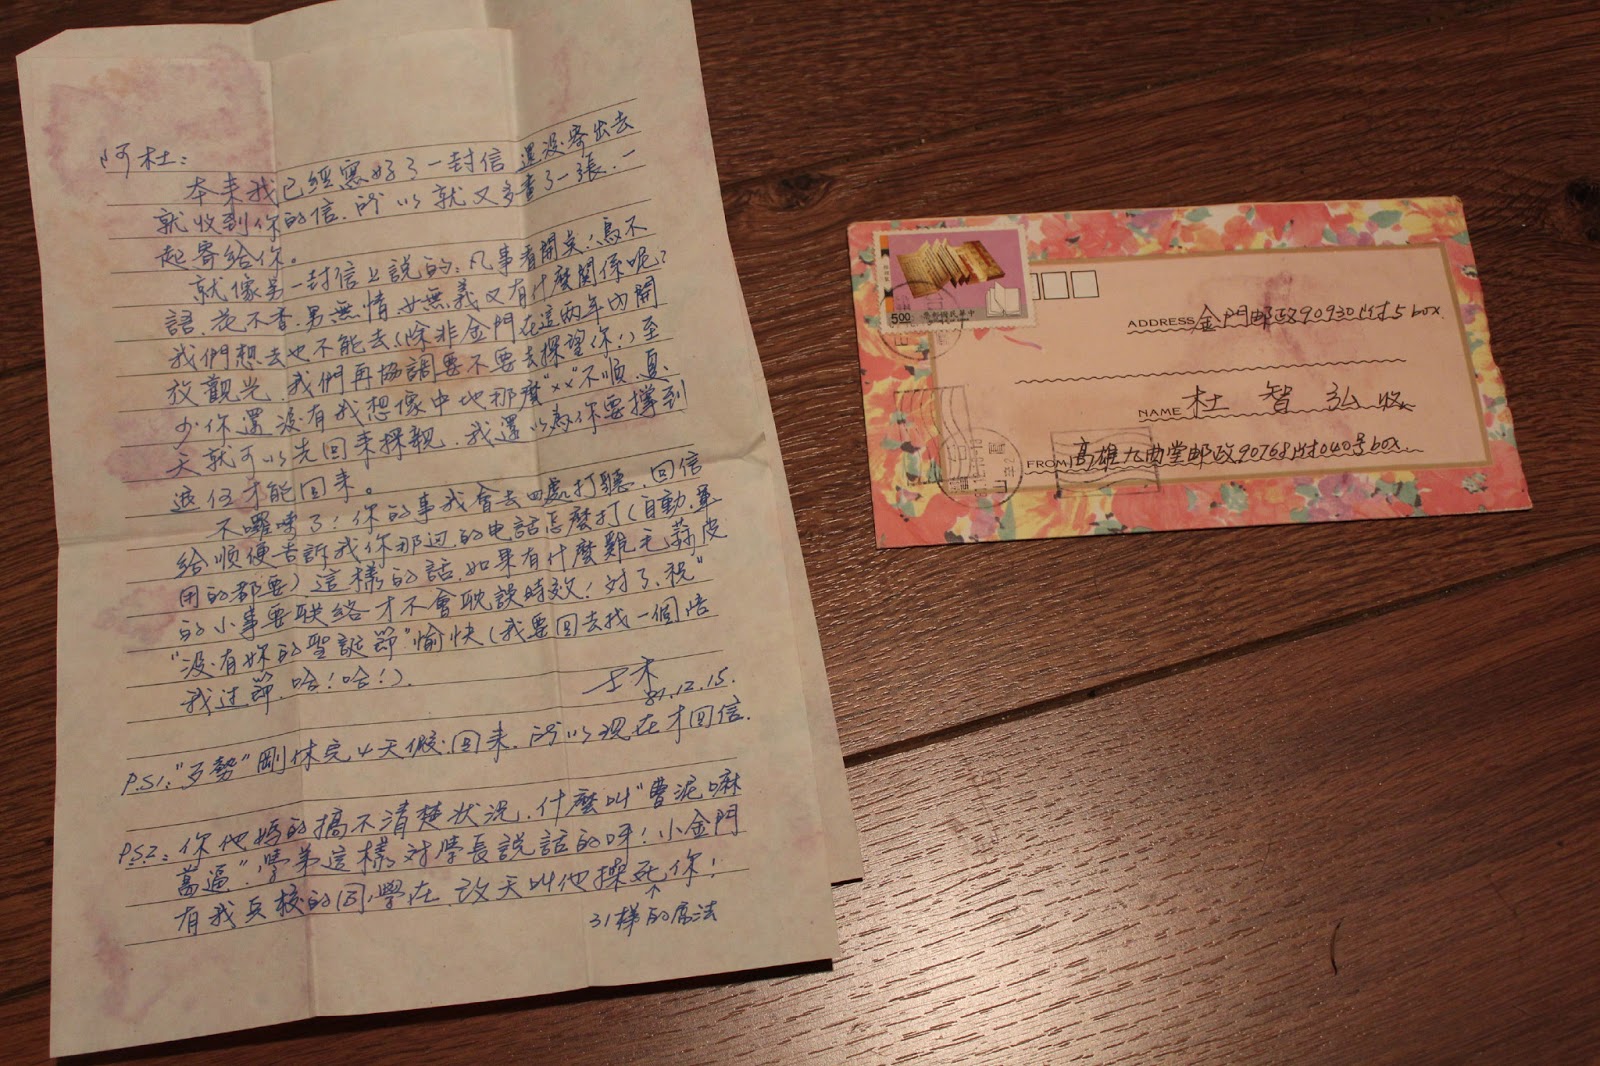 阿杜：
本来我已經寫好了一封信 還没寄出去
就收到你的信．所以就又多書了一張．一
起寄給你。
就像另一封信上說的：凡事看開點！鳥不
語．花不香．男無情 女無義又有什麼關係呢？
我們想去也不能去(除非金門在這兩年內開
放觀光．我們再協調要不要去探望你！)至
少你還没有我想像中地那麼"××"不順．夏
天就可以先回来探親．我還以為你要撐到
退伍才能回来。
不囉嗦了！你的事我會去四處打聽．回信
給順便告訴我你那边的电話怎麼打(自動．軍
用的都要)這樣的話．如果有什麼雞毛蒜皮
的小事要联絡才不會耽誤時效！对了．祝
"没有妳的聖誕節"愉快(我要回去找一個陪
我过節．哈！哈！)．
81.12.15.
P.S1："歹勢"剛休完4天假．回来．所以現在才回信．
P.S2：你他媽的搞不清楚状况．什麼叫"曹泥嘛
葛逼"．學弟這樣对學長說話的呀！小金門
有我兵校的同學在．改天叫他操死你！
31梯的魔法
5.00
中華民國郵票
ADDRESS 金門邮政90930附5 box.
NAME 杜 智 弘 收
FROM 高雄九曲堂邮政90768附040号box